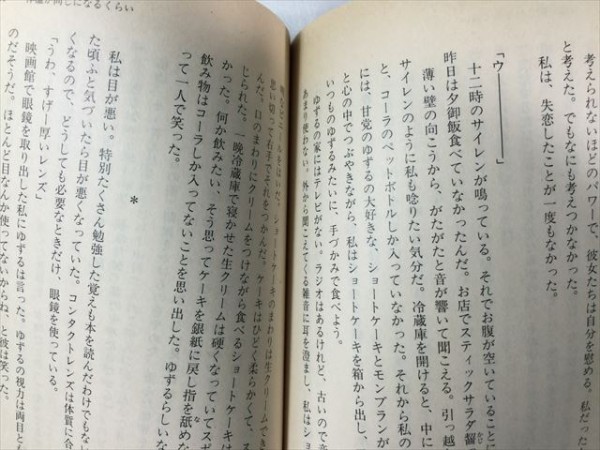 考えられないほどのパワーで、彼女たちは自分を慰める。私だった
と考えた。でもなにも考えつかなかった。
私は、失恋したことが一度もなかった。
「ウ―――――」
十二時のサイレンが鳴っている。それでお腹が空いていることに
昨日は夕御飯食べていなかったんだ。お店でスティックサラダ齧
薄い壁の向こうから、がたがたと音が響いて聞こえる。引っ越
サイレンのように私も唸りたい気分だ。冷蔵庫を開けると、中に
と、コーラのペットボトルしか入っていなかった。それから私の
には、甘党のゆずるの大好きな、ショートケーキとモンブランが
と心の中でつぶやきながら、私はショートケーキを箱から出し、
いつものゆずるみたいに、手づかみで食べよう。
ゆずるの家にはテレビがない。ラジオはあるけれど、古いので音
あまり使わない。外から聞こえてくる雑音に耳を澄まし、私はショー
体温が同じになるくらい
ショートケーキのまわりは生クリームでき
思い切って右手でそれをつかんだ。ケーキはひどく柔らかくて、
んだ。口のまわりにクリームをつけながら食べるショートケーキは
じられた。一晩冷蔵庫で寝かせた生クリームは硬くなっていてスポ
かった。何か飲みたい、そう思ってケーキを銀紙に戻し指を舐めな
飲み物はコーラしか入ってないことを思い出した。ゆずるらしい
って一人で笑った。
*
私は目が悪い。特別たくさん勉強した覚えも本を読んだわけでもな
た頃ふと気づいたら目が悪くなっていた。コンタクトレンズは体質に合
くなるので、どうしても必要なときだけ、眼鏡を使っている。
「うわ、すげー厚いレンズ」
映画館で眼鏡を取り出した私にゆずるは言った。ゆずるの視力は両目とも
のだそうだ。ほとんど目なんか使ってないからね、と彼は笑った。